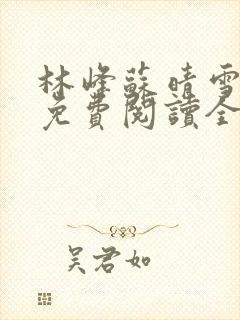 林峰蘇晴雪
免費閱讀全
吳君如